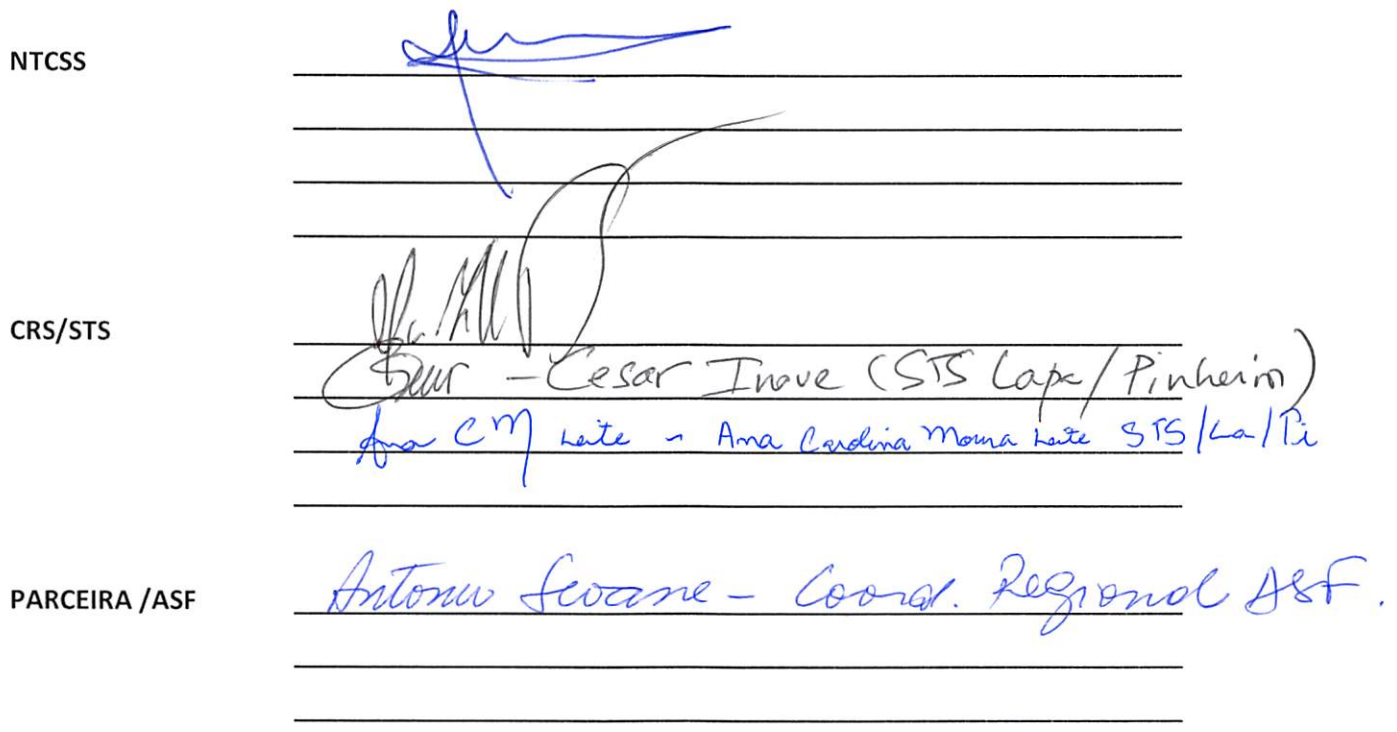 NTCSS
CRS/STS
Cesar Inoue (STS Lapa/Pinheiros)
Ana CM Leite - Ana Carolina Moura Leite STS/La/Pi
PARCEIRA /ASF Antonio Seoane - Coord. Regional ASF.